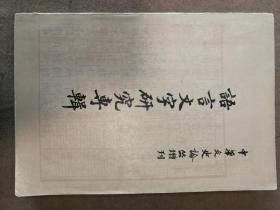 語言文字研究專輯
中華文史論丛增刊